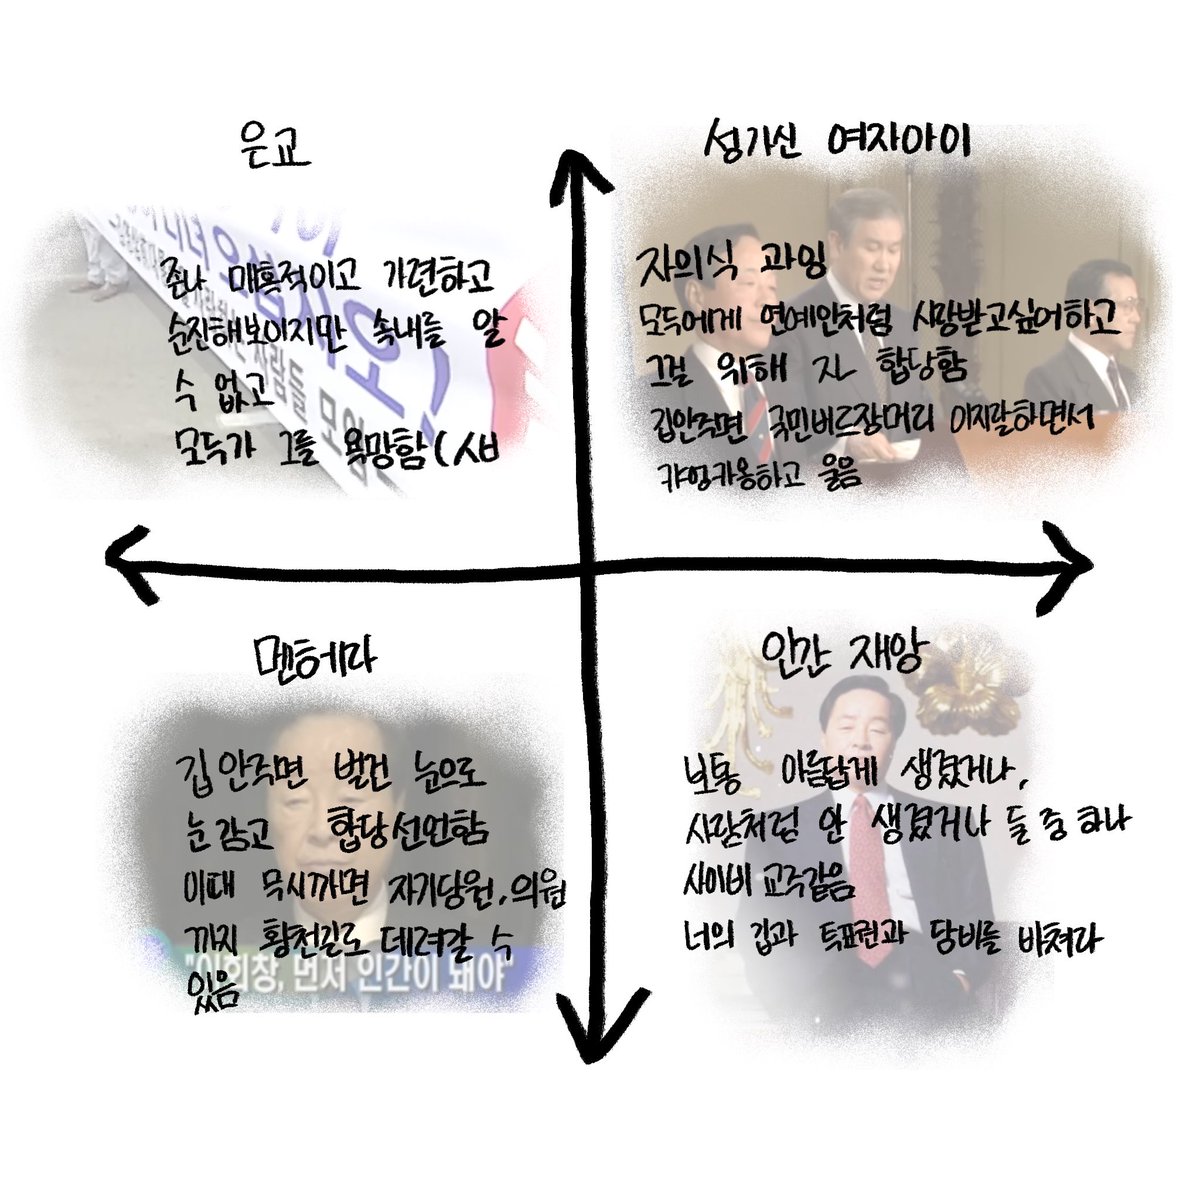 은교
존나 매혹적이고 가련하고
순진해보이지만 속내를 알
수 없고
모두가 그를 욕망함(시비
성가신 여자아이
자의식 과잉
모두에게 연예인처럼 사랑받고싶어하고
그걸 위해 합당함
김안주면 국민버르장머리 이지랄하면서
캬앙캬옹하고 울음
멘헤라
김안주면 벌건 눈으로
눈감고 합당선언함
이때 무시까면 자기당원, 의원
까지 황천길로 데려갈 수
있음
"이회창, 먼저 인간이 돼야"
인간 재앙
보통 아름답게 생겼거나,
사람처럼 안 생겼거나 둘 중 하나
사이비 교주같음
너의 김과 투표권과 당비를 바쳐라